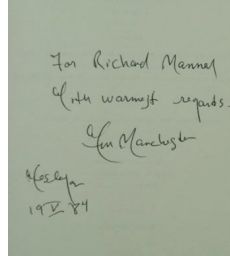 For Richard Mannel
With warmest regards.
Wm Manchester
Wesleyan
19 V 84